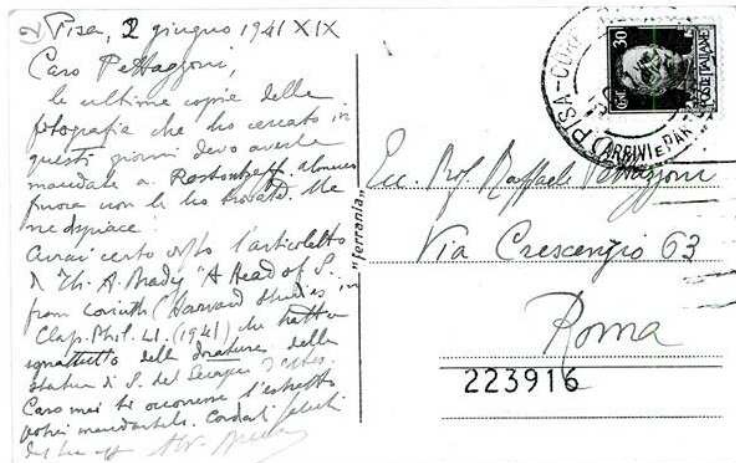 Pisa, 2 giugno 1941 XIX
Caro Pettazzoni,
le ultime copie delle
fotografie che ho cercato in
questi giorni devo averle
mandate a Rostovtzeff. Almeno
finora non le ho trovate. Me
ne dispiace.
Avrai certo visto l'articoletto
di Th. A. Brady "A Head of S.
from Corinth (Harvard Studies in
Class. Phil. LI. (1941) che tratta
della doratura della
statua di S. del
Caso mai ti occorresse l'estratto
potrei mandartelo. Cordiali saluti
"ferrania"
CENT. 30
POSTE ITALIANE
PISA
ARRIVI E PARTENZE
Ecc. Prof. Raffaele Pettazzoni
Via Crescenzio 63
Roma
223916